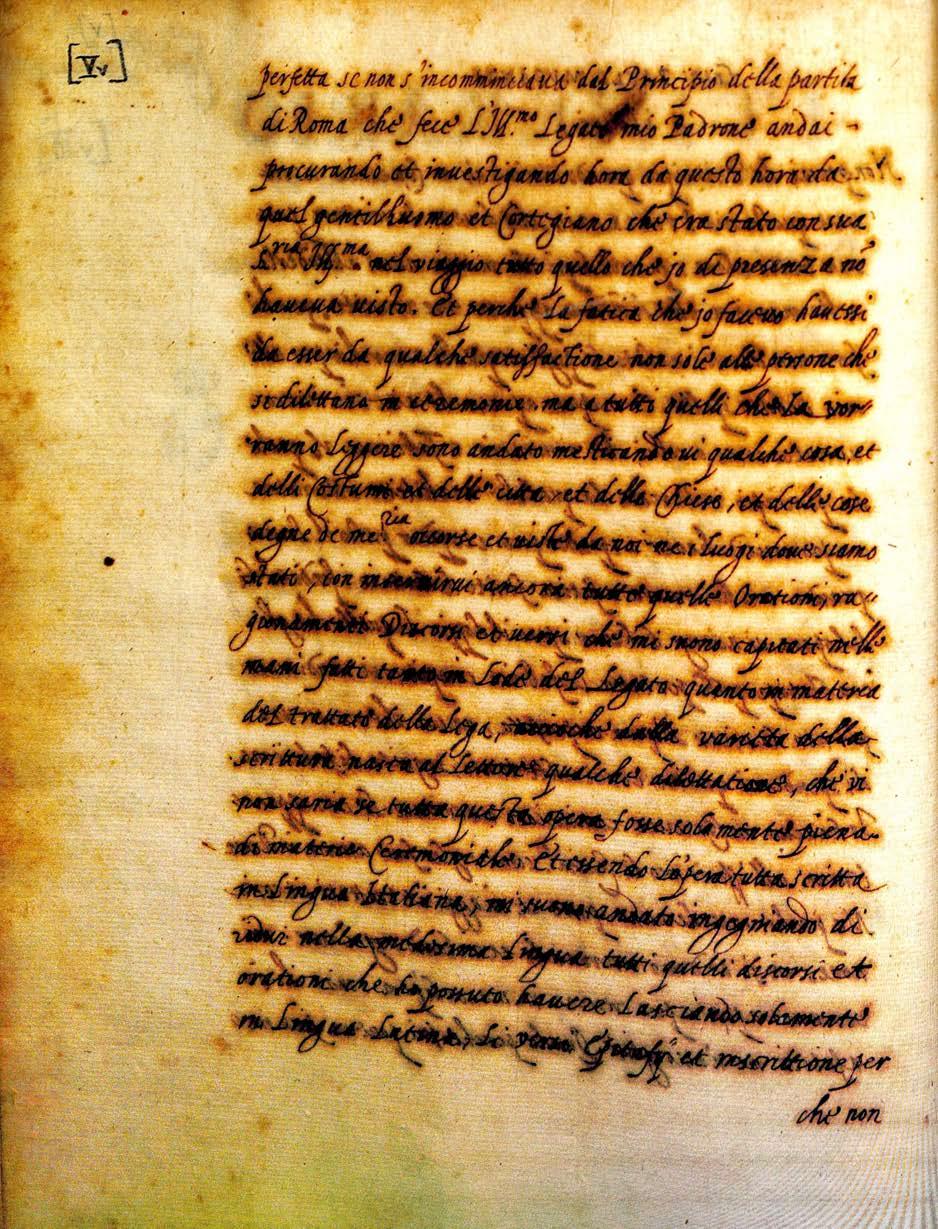 [Vv]
perfetta se non s'incomminciava dal Principio della partita
di Roma che fece L'Ill.mo Legato mio Padrone andai
procurando et investigando hora da questo hora da
quel gentilhuomo et Cortegiano che era stato con sua
S.ria Ill.ma nel viaggio tutto quello che jo di presenza nō
havava visto. Et perche La fatica che jo facevo havessi
da esser da qualche satisfactione non solo alle persone che
si dilettano in ceremonie, ma a tutto quelli che La vor-
ranno Leggere sono andato mesticandovi qualche cosa, et
delli Costumi et delle citta et delle Chiese, et delle cose
degne de me.ria occorse et viste da noi ne i luogi dove siamo
stati, con inserirvi ancora tutte quelle Orationi, ra-
gionamenti Discorsi et versi che mi sonno capitati nelle
mani fatti tanto in Lode del Legato quanto in materia
del trattato della Lega, accioche dalla varietta della
scrittura nasca al Lettore qualche dilettatione, che vi
non saria se tutta questa opera fosse solamente piena
di materia Ceremoniale. Et essendo L'opera tutta scritta
in Lingua Ittaliana, mi suono andato ingegniando di
ridur nella medesima Lingua tutti quelli discorsi et
orationi che ho possuto havere Lasciando solamente
in Lingua Latina, Li versi Epitafij et inscrittione per
che non